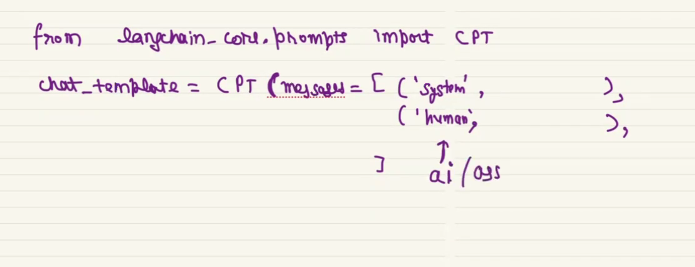 from langchain_core.prompts import CPT
chat_template = CPT (messages = [ ('system', ),
('human', ),
]
ai/ass